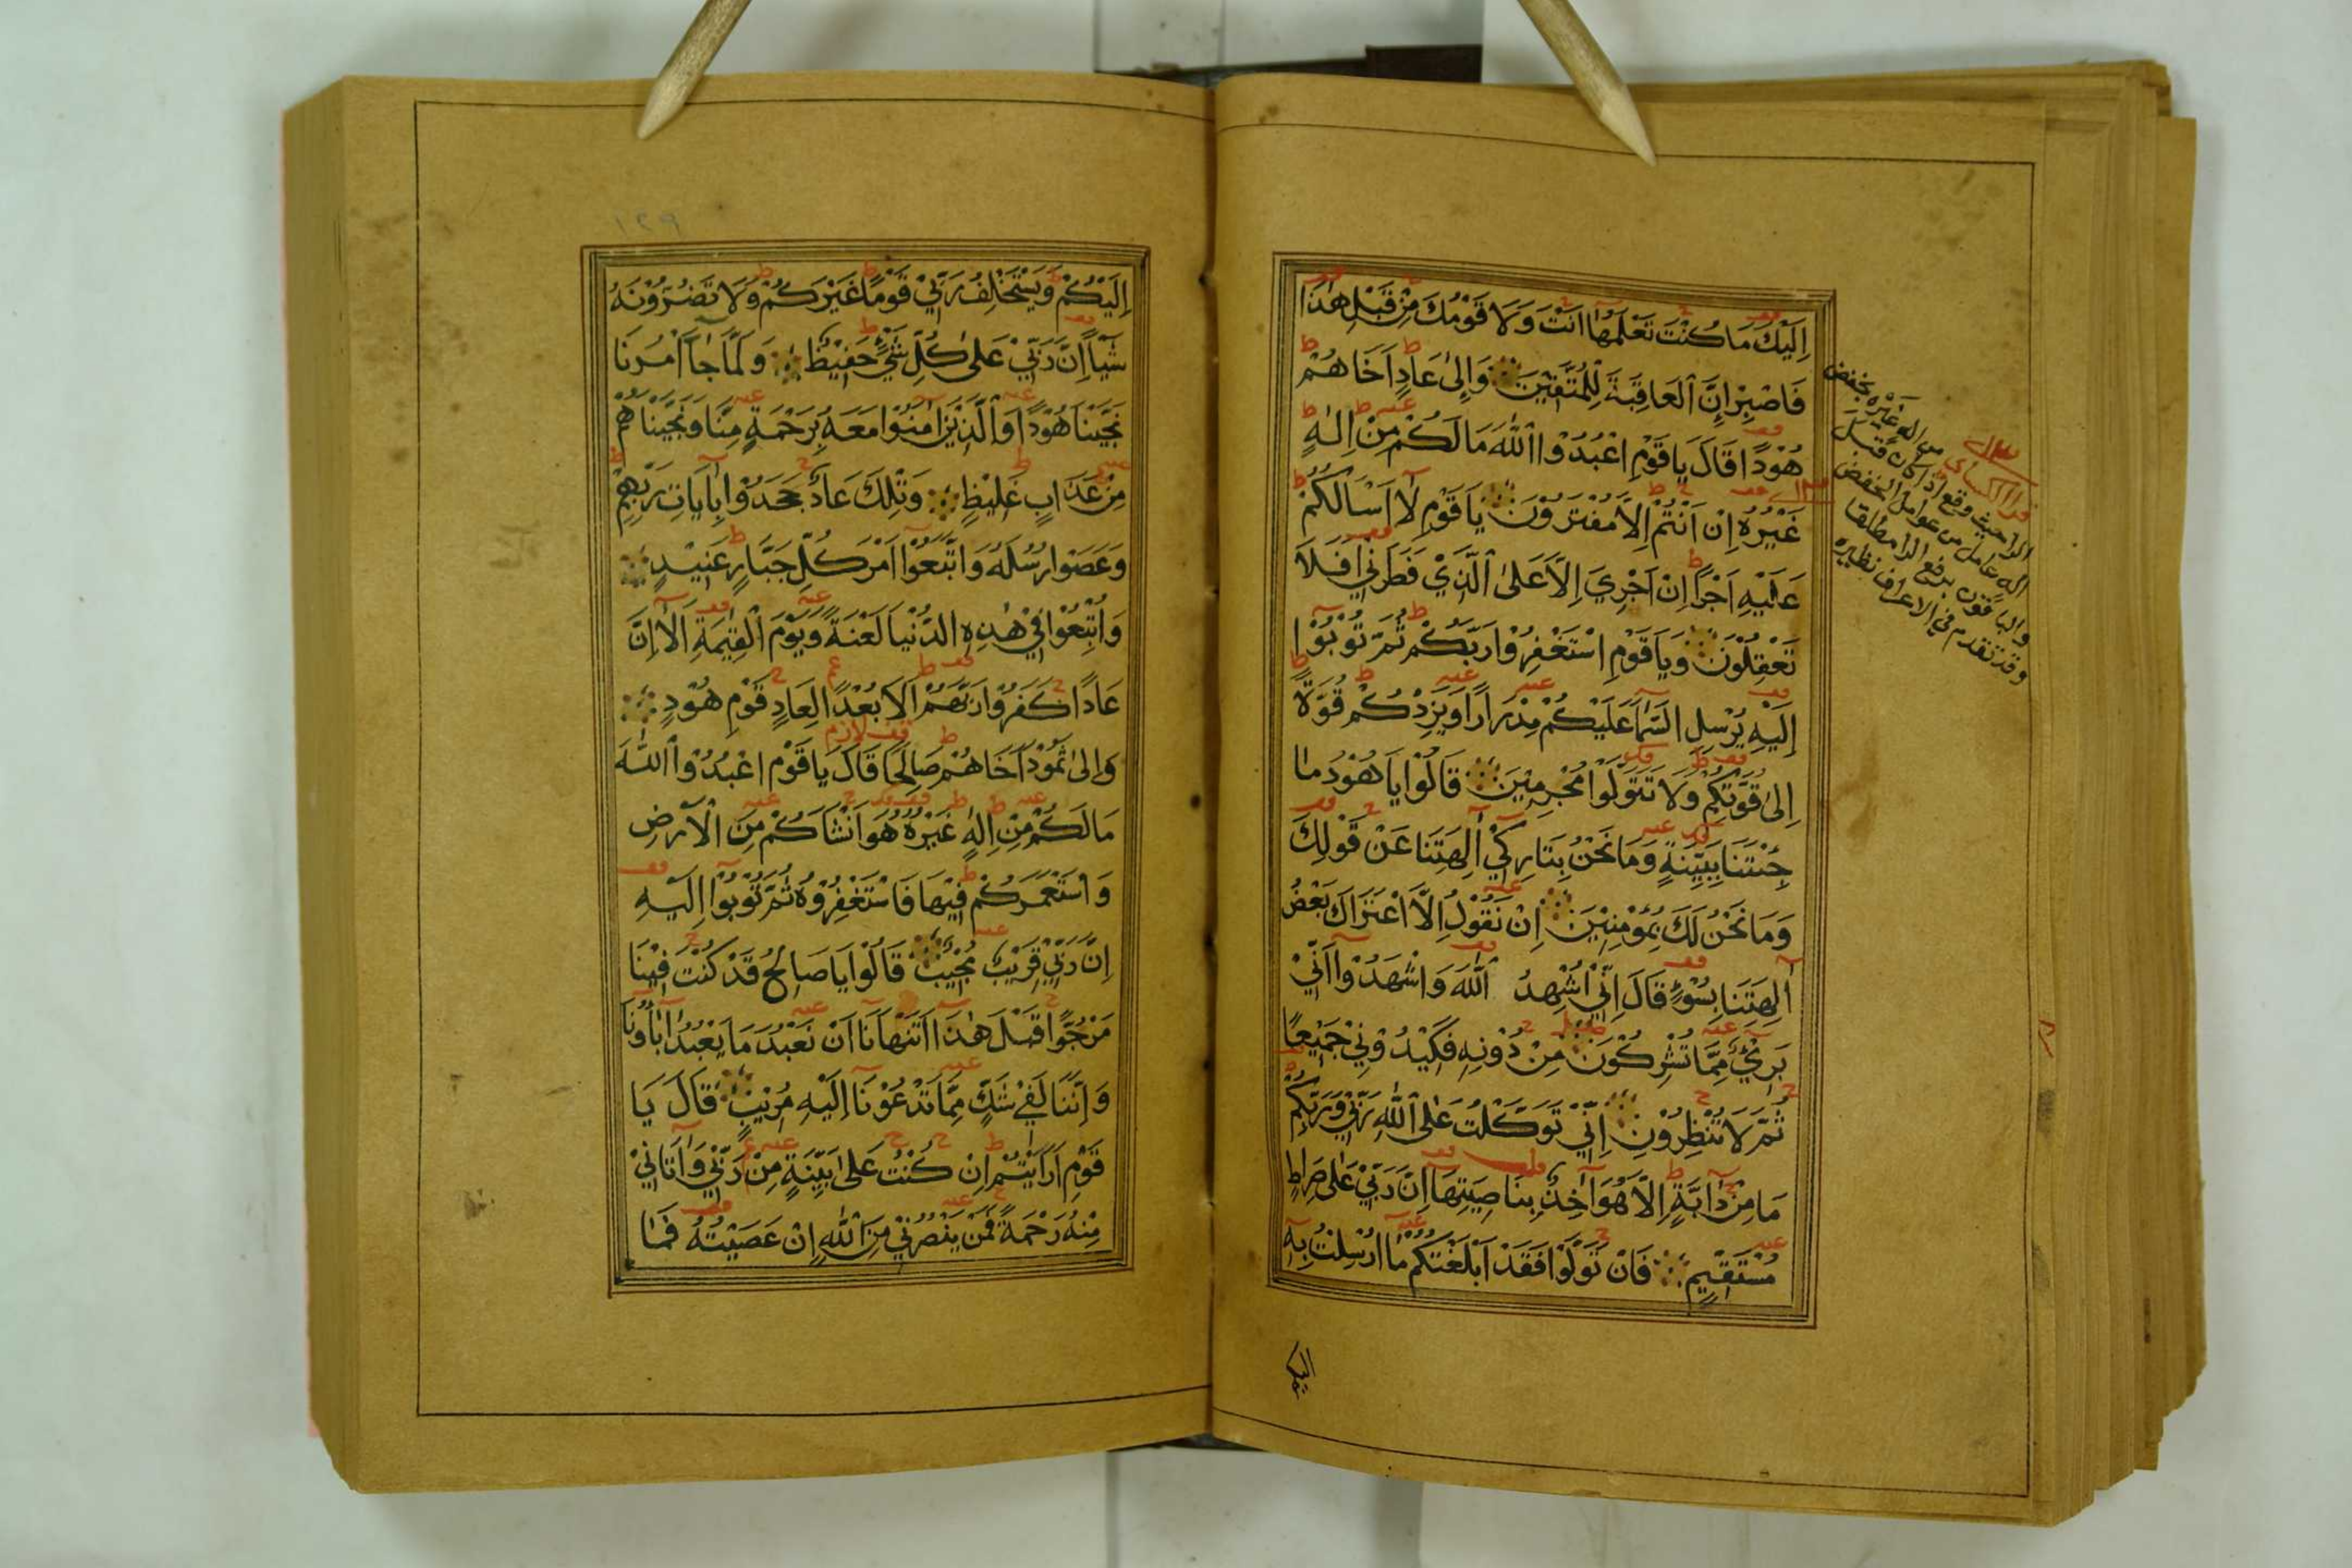 اِلَيْكَ مَا كُنْتَ تَعْلَمُهَا اَنْتَ وَلَا قَوْمُكَ مِنْ قَبْلِ هٰذَا
فَاصْبِرْ اِنَّ الْعَاقِبَةَ لِلْمُتَّقِيْنَ وَاِلٰى عَادٍ اَخَاهُمْ
هُوْدًا قَالَ يَا قَوْمِ اعْبُدُوا اللّٰهَ مَا لَكُمْ مِنْ اِلٰهٍ
غَيْرُهُ اِنْ اَنْتُمْ اِلَّا مُفْتَرُوْنَ يَا قَوْمِ لَا اَسْاَلُكُمْ
عَلَيْهِ اَجْرًا اِنْ اَجْرِيَ اِلَّا عَلَى الَّذِيْ فَطَرَنِيْ اَفَلَا
تَعْقِلُوْنَ وَيَا قَوْمِ اسْتَغْفِرُوْا رَبَّكُمْ ثُمَّ تُوْبُوْا
اِلَيْهِ يُرْسِلِ السَّمَآ عَلَيْكُمْ مِدْرَارًا وَيَزِدْكُمْ قُوَّةً
اِلٰى قُوَّتِكُمْ وَلَا تَتَوَلَّوْا مُجْرِمِيْنَ قَالُوْا يَا هُوْدُ مَا
جِئْتَنَا بِبَيِّنَةٍ وَمَا نَحْنُ بِتَارِكِيْ اٰلِهَتِنَا عَنْ قَوْلِكَ
وَمَا نَحْنُ لَكَ بِمُؤْمِنِيْنَ اِنْ نَقُوْلُ اِلَّا اعْتَرَاكَ بَعْضُ
اٰلِهَتِنَا بِسُوْءٍ قَالَ اِنِّيْ اُشْهِدُ اللّٰهَ وَاشْهَدُوْا اَنِّيْ
بَرِيْءٌ مِمَّا تُشْرِكُوْنَ مِنْ دُوْنِهِ فَكِيْدُوْنِيْ جَمِيْعًا
ثُمَّ لَا تُنْظِرُوْنِ اِنِّيْ تَوَكَّلْتُ عَلَى اللّٰهِ رَبِّيْ وَرَبِّكُمْ
مَا مِنْ دَآبَّةٍ اِلَّا هُوَ اٰخِذٌ بِنَاصِيَتِهَا اِنَّ رَبِّيْ عَلٰى صِرَاطٍ
مُسْتَقِيْمٍ فَاِنْ تَوَلَّوْا فَقَدْ اَبْلَغْتُكُمْ مَا اُرْسِلْتُ بِهِ
من اله غيره بخفض
قرا الكسائي
الرا حيث وقع اذا كان قبل
اله عامل من عوامل الخفض
والباقون برفع الرا مطلقا
وقد تقدم في الاعراف نظيره
اليكم
١٢٩
اِلَيْكُمْ وَيَسْتَخْلِفُ رَبِّيْ قَوْمًا غَيْرَكُمْ وَلَا تَضُرُّوْنَهُ
شَيْئًا اِنَّ رَبِّيْ عَلٰى كُلِّ شَيْءٍ حَفِيْظٌ وَلَمَّا جَآءَ اَمْرُنَا
نَجَّيْنَا هُوْدًا وَالَّذِيْنَ اٰمَنُوْا مَعَهُ بِرَحْمَةٍ مِنَّا وَنَجَّيْنَاهُمْ
مِنْ عَذَابٍ غَلِيْظٍ وَتِلْكَ عَادٌ جَحَدُوْا بِاٰيَاتِ رَبِّهِمْ
وَعَصَوْا رُسُلَهُ وَاتَّبَعُوْا اَمْرَ كُلِّ جَبَّارٍ عَنِيْدٍ
وَاُتْبِعُوْا فِيْ هٰذِهِ الدُّنْيَا لَعْنَةً وَيَوْمَ الْقِيٰمَةِ اَلَا اِنَّ
عَادًا كَفَرُوْا رَبَّهُمْ اَلَا بُعْدًا لِعَادٍ قَوْمِ هُوْدٍ
وَاِلٰى ثَمُوْدَ اَخَاهُمْ صَالِحًا قَالَ يَا قَوْمِ اعْبُدُوا اللّٰهَ
مَا لَكُمْ مِنْ اِلٰهٍ غَيْرُهُ هُوَ اَنْشَاَكُمْ مِنَ الْاَرْضِ
وَاسْتَعْمَرَكُمْ فِيْهَا فَاسْتَغْفِرُوْهُ ثُمَّ تُوْبُوْا اِلَيْهِ
اِنَّ رَبِّيْ قَرِيْبٌ مُجِيْبٌ قَالُوْا يَا صَالِحُ قَدْ كُنْتَ فِيْنَا
مَرْجُوًّا قَبْلَ هٰذَا اَتَنْهَانَا اَنْ نَعْبُدَ مَا يَعْبُدُ اٰبَاؤُنَا
وَاِنَّنَا لَفِيْ شَكٍّ مِمَّا تَدْعُوْنَا اِلَيْهِ مُرِيْبٍ قَالَ يَا
قَوْمِ اَرَاَيْتُمْ اِنْ كُنْتُ عَلٰى بَيِّنَةٍ مِنْ رَبِّيْ وَاٰتَانِيْ
مِنْهُ رَحْمَةً فَمَنْ يَنْصُرُنِيْ مِنَ اللّٰهِ اِنْ عَصَيْتُهُ فَمَا